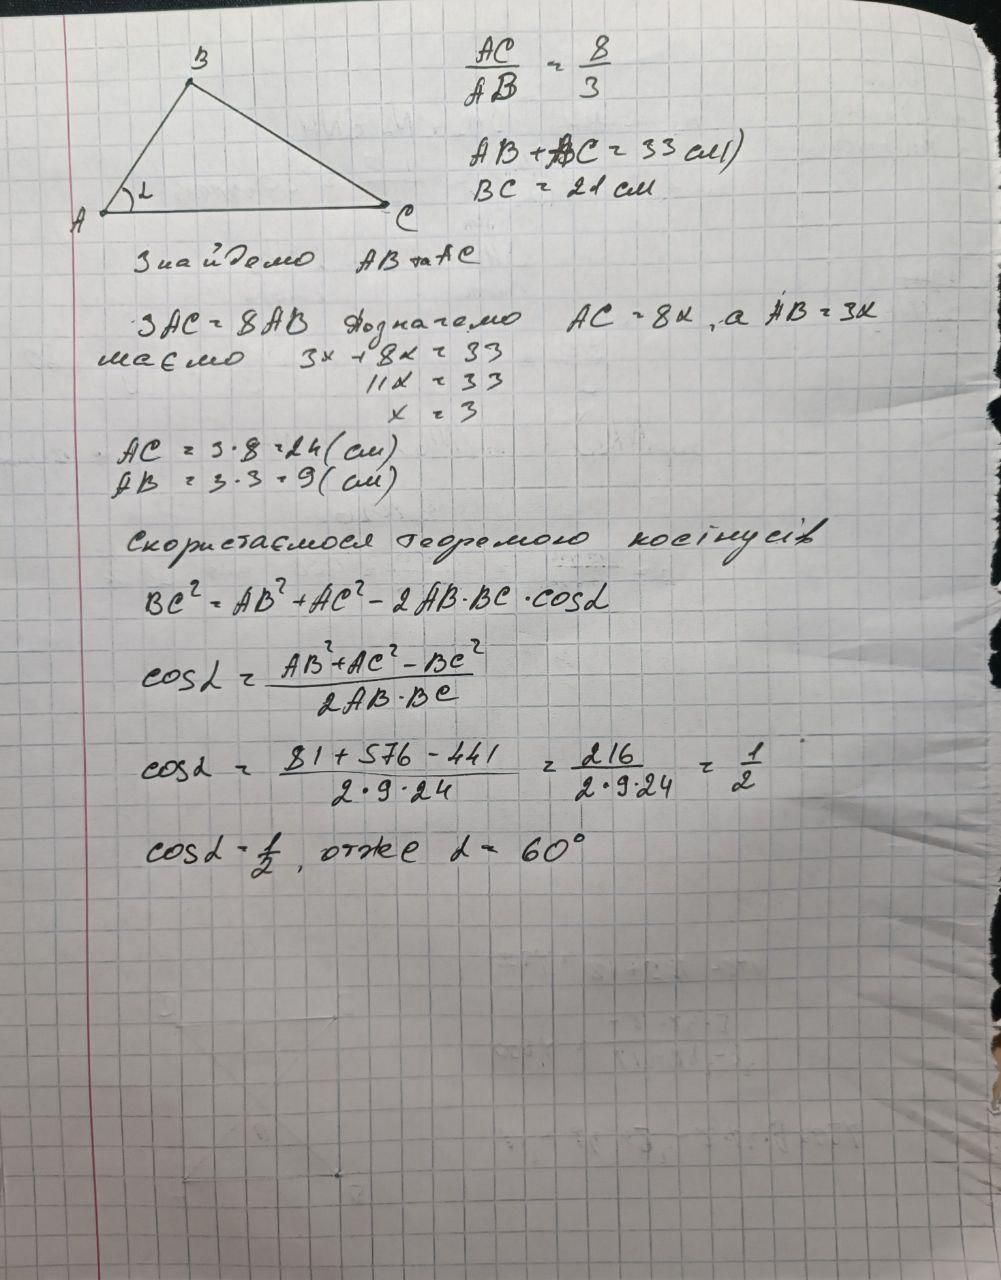 B
A
α
C
AC/AB = 8/3
AB + AC = 33 см)
BC = 21 см
Знайдемо AB та AC
3AC = 8AB Позначемо AC = 8x, а AB = 3x
маємо 3x + 8x = 33
11x = 33
x = 3
AC = 3·8 = 24 (см)
AB = 3·3 = 9 (см)
Скористаємося теоремою косінусів
BC² = AB² + AC² - 2AB·BC·cosα
cosα = (AB² + AC² - BC²)/(2AB·BC)
cosα = (81 + 576 - 441)/(2·9·24) = 216/(2·9·24) = 1/2
cosα = 1/2, отже α = 60°